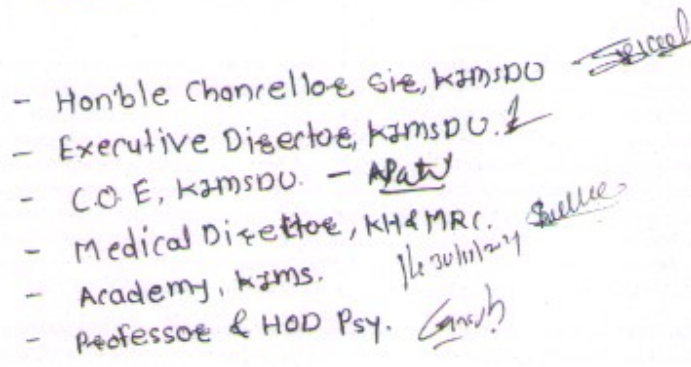 - Hon'ble Chancellor Sir, KIMSDU
- Executive Director, KIMSDU.
- C.O.E, KIMSDU. -
- Medical Director, KH&MRC.
- Academy, KIMS.
- Professor & HOD Psy.